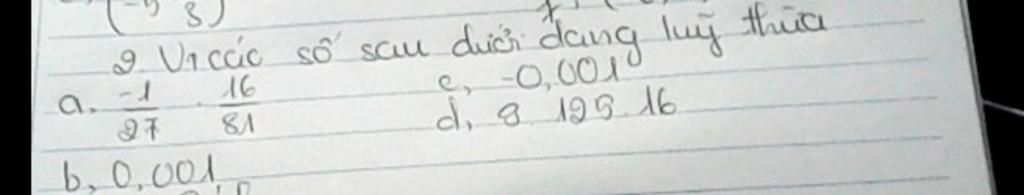 (-5 8)
2. Vi các số sau dưới dạng luỹ thừa
a. -1/27 . 16/81 c, -0,001
d, 8 125 16
b, 0,001